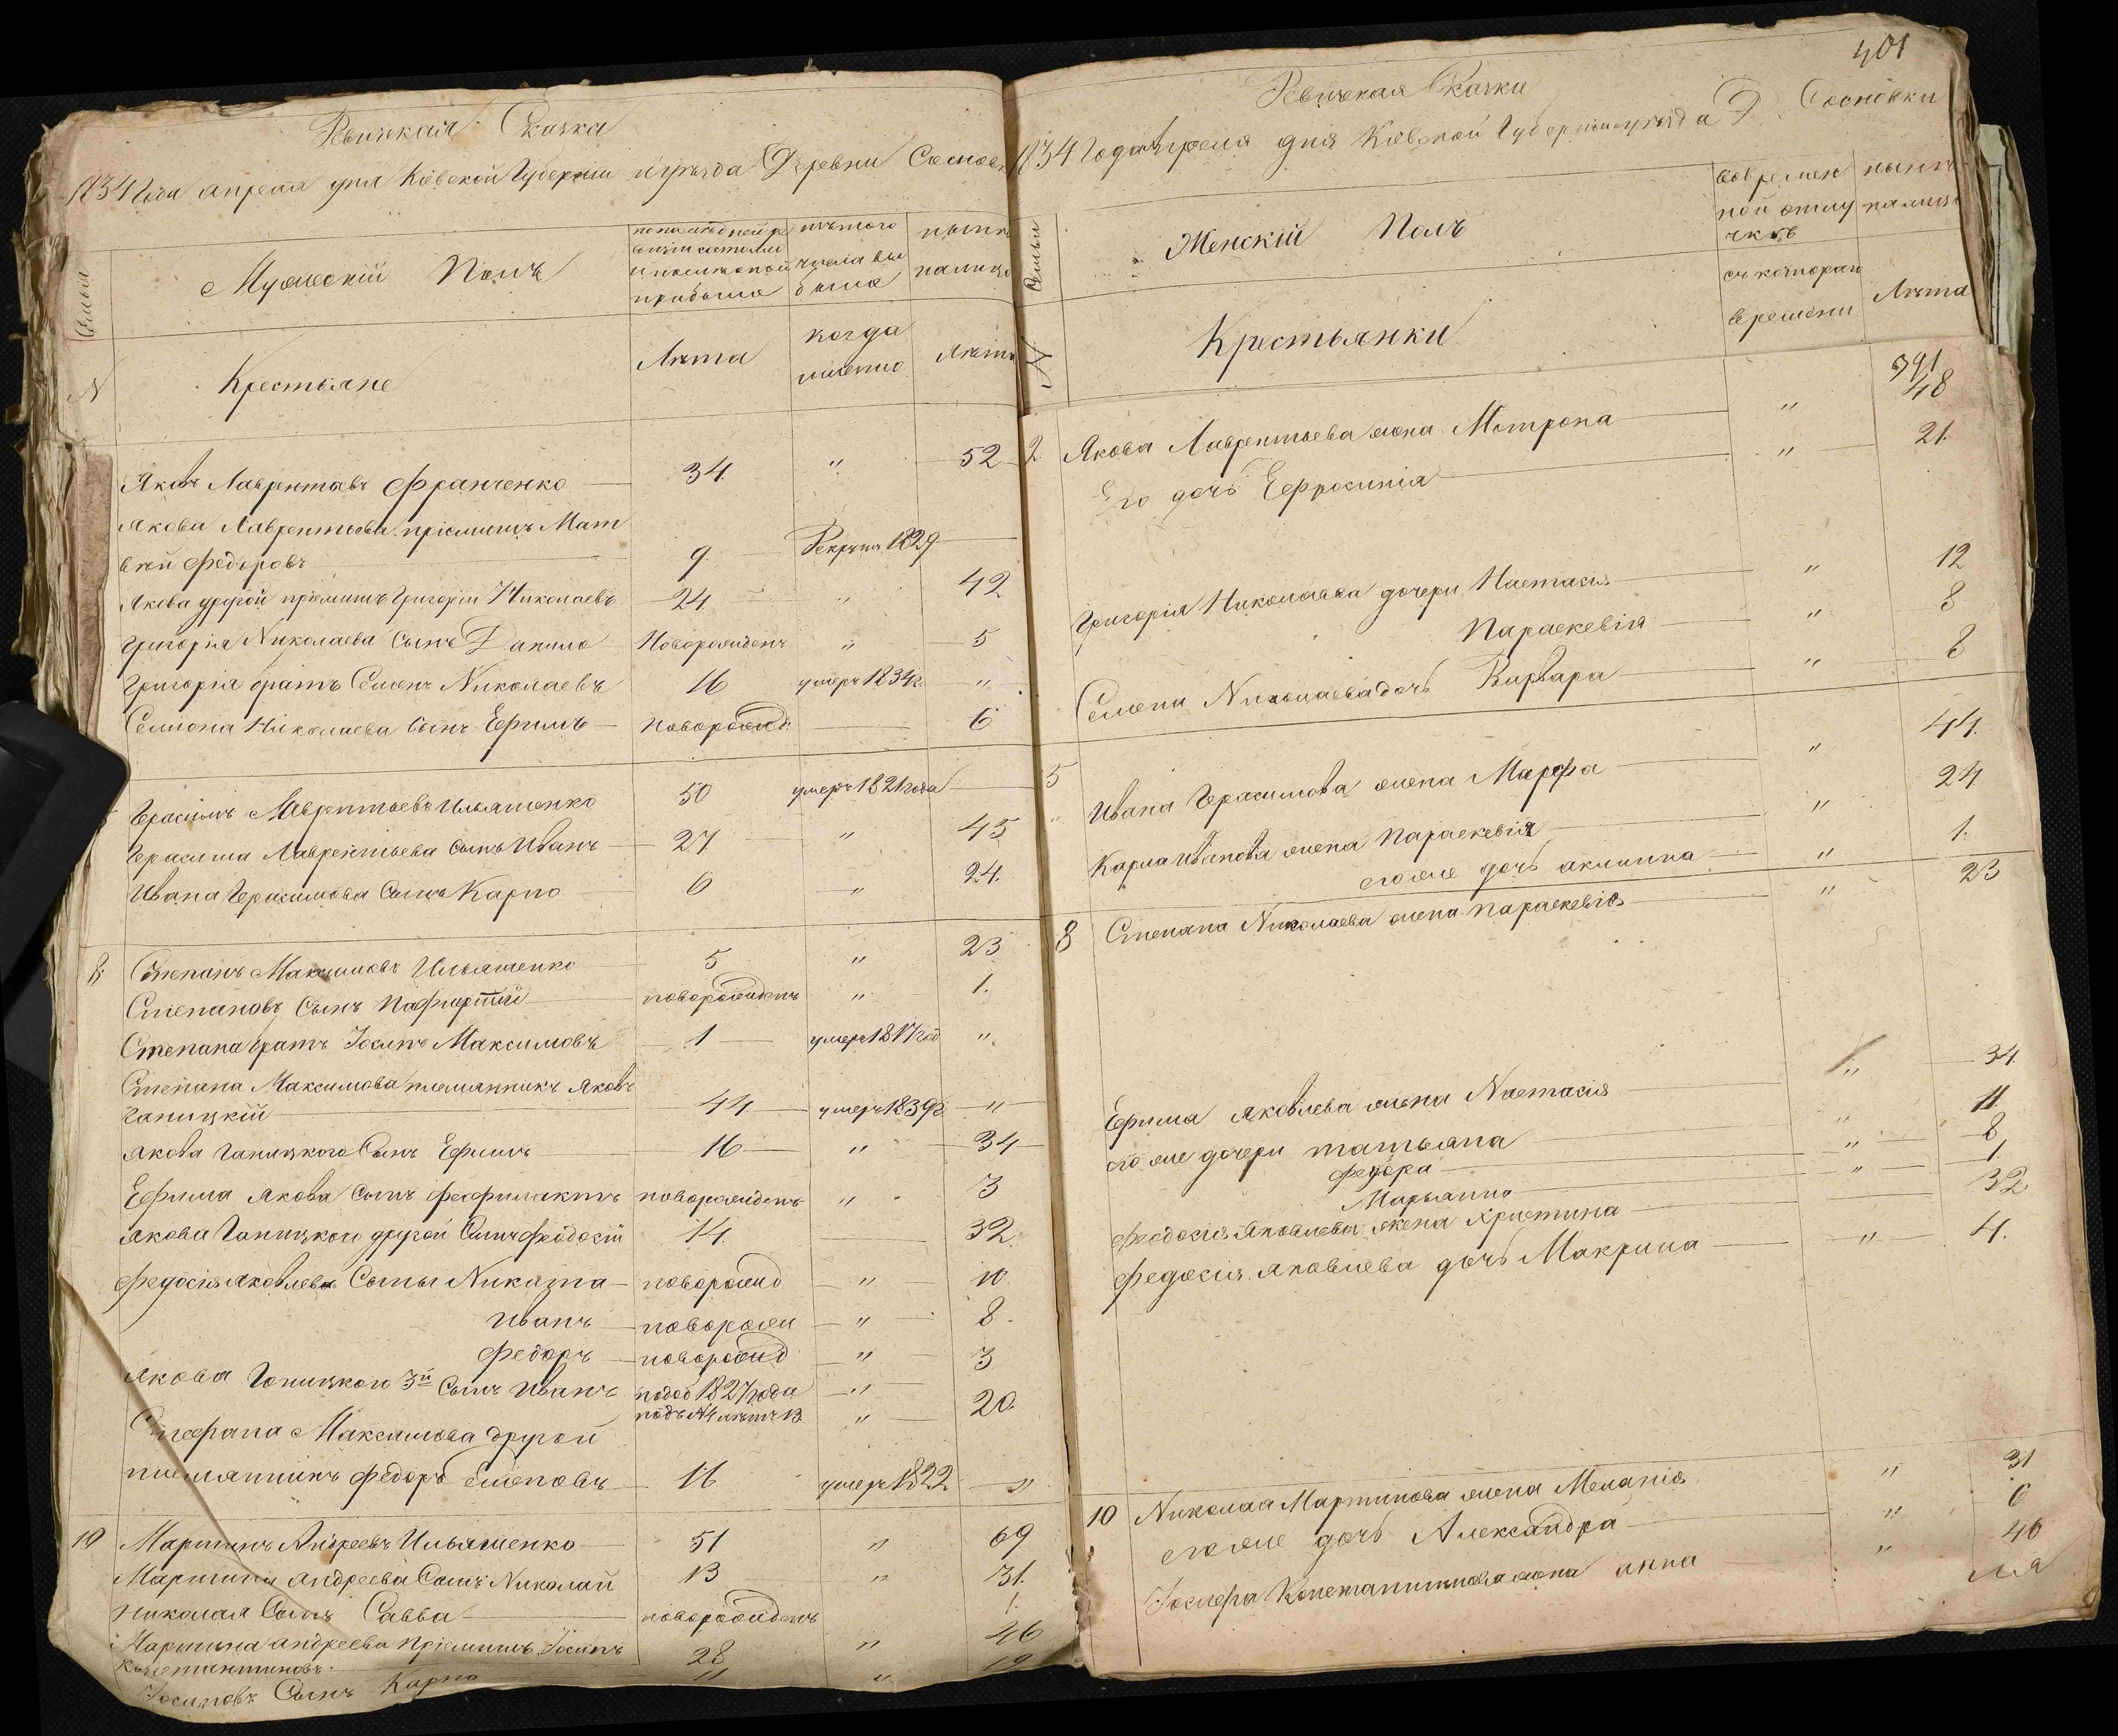 Ревижская Сказка
1834 Года апреля дня Кіевской Губерніи и уезда Деревни Соснов
Семьи
Мужескій Полъ
по последней ре
визіи состояло
и после оной
прибыло
изъ того
числа вы
было
ныне
на лицо
N
Крестьяне
Лета
когда
именно
Лета
Яковъ Лаврентьевъ Франченко 34. " 52
Якова Лаврентьева пріемышъ Мат
вей Федоровъ 9. Рекрутъ 1829
Якова другой пріемышъ Григорій Николаевъ 24 " 42
Григорія Николаева Сынъ Данило Новорожденъ " 5
Григорія братъ Семенъ Николаевъ 16 умеръ 1834г. "
Семиона Николаева Сынъ Ефимъ новорожд: 6
Герасимъ Лаврентьевъ Ильяшенко 50 умеръ 1821 года
Герасима Лаврентьева Сынъ Иванъ 27 " 45
Ивана Герасимова Сынъ Карпо 6 " 24.
8. Степанъ Максимовъ Ильяшенко 5 " 23
Степановъ Сынъ новорожденъ " 1.
Степана братъ Іосипъ Максимовъ 1 умеръ 1817 год "
Степана Максимова племянникъ Яковъ
Ганицкій 44 умеръ "
Якова Ганицкого Сынъ Ефимъ 16 " 34
Ефима Якова Сынъ Феофилактъ новорожденъ " 3
Якова Ганицкого другой Сынъ Феодосій 14. 32.
Федосія Яковлева Сыны Никита новорожд " 10.
Иванъ новорожд " 8.
Федоръ новорожд " 3
Якова Ганицкого 3й Сынъ Иванъ 1827 года " 20.
Стефана Максимова другой "
племянникъ Федоръ Семеновъ 16 умеръ 1822 "
10 Мартинъ Андреевъ Ильяшенко 51 " 69
Мартина Андреева Сынъ Николай 13 " 31.
Николая Сынъ Савва новорожденъ 1.
Мартина Андреева пріемышъ Іосипъ
Константиновъ. 28 " 46
Іосиповъ Сынъ Карпо 11 " 19
401
Ревижская Сказка
1834 Года Апреля дня Кіевской Губерніи и уезда Д. Сосновки
Семьи
Женскій Полъ
во времен
ной отлу
чке
ныне
на лицо
N
Крестьянки
съ котораго
времени
Лета
391
2. Якова Лаврентьева жена Мотрона " 48
Его дочь Ефросинія " 21.
Григорія Николаева дочери Настасия " 12
Параскевія " 8
Семена Николаева дочь Варвара " 8
5 Ивана Герасимова жена Марфа " 44.
Карпа Иванова жена Параскевія " 24.
его же дочь акилина " 1.
8 Степана Николаева жена Параскевія " 23
Ефима Яковлева жена Настасия " 34
его же дочери татьяна " 11.
Федора " 8
Марьянна " 1.
Феодосія Яковлева жена Христина 32
Федосія Яковлева дочь Макрина " 4.
10 Николая Мартинова жена Меланія " 31
его же дочь Александра " 6
Іосифа Константинова жена анна " 46